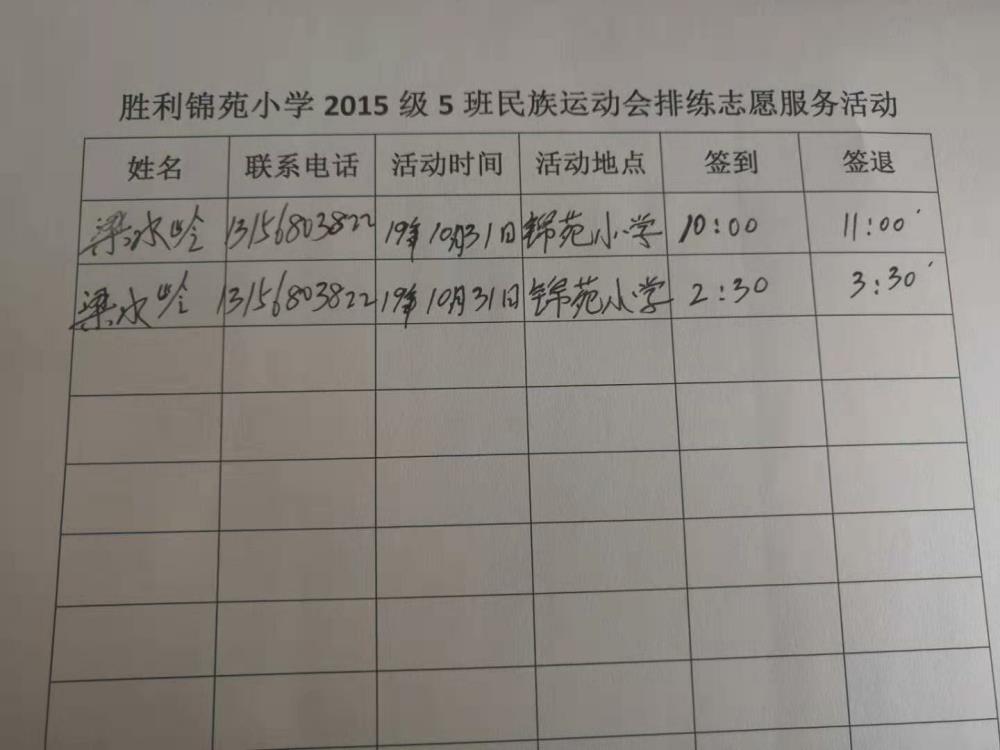 胜利锦苑小学 2015 级 5 班民族运动会排练志愿服务活动
姓名 联系电话 活动时间 活动地点 签到 签退
梁水岭 13156803822 19年10月31日 锦苑小学 10:00 11:00
梁水岭 13156803822 19年10月31日 锦苑小学 2:30 3:30